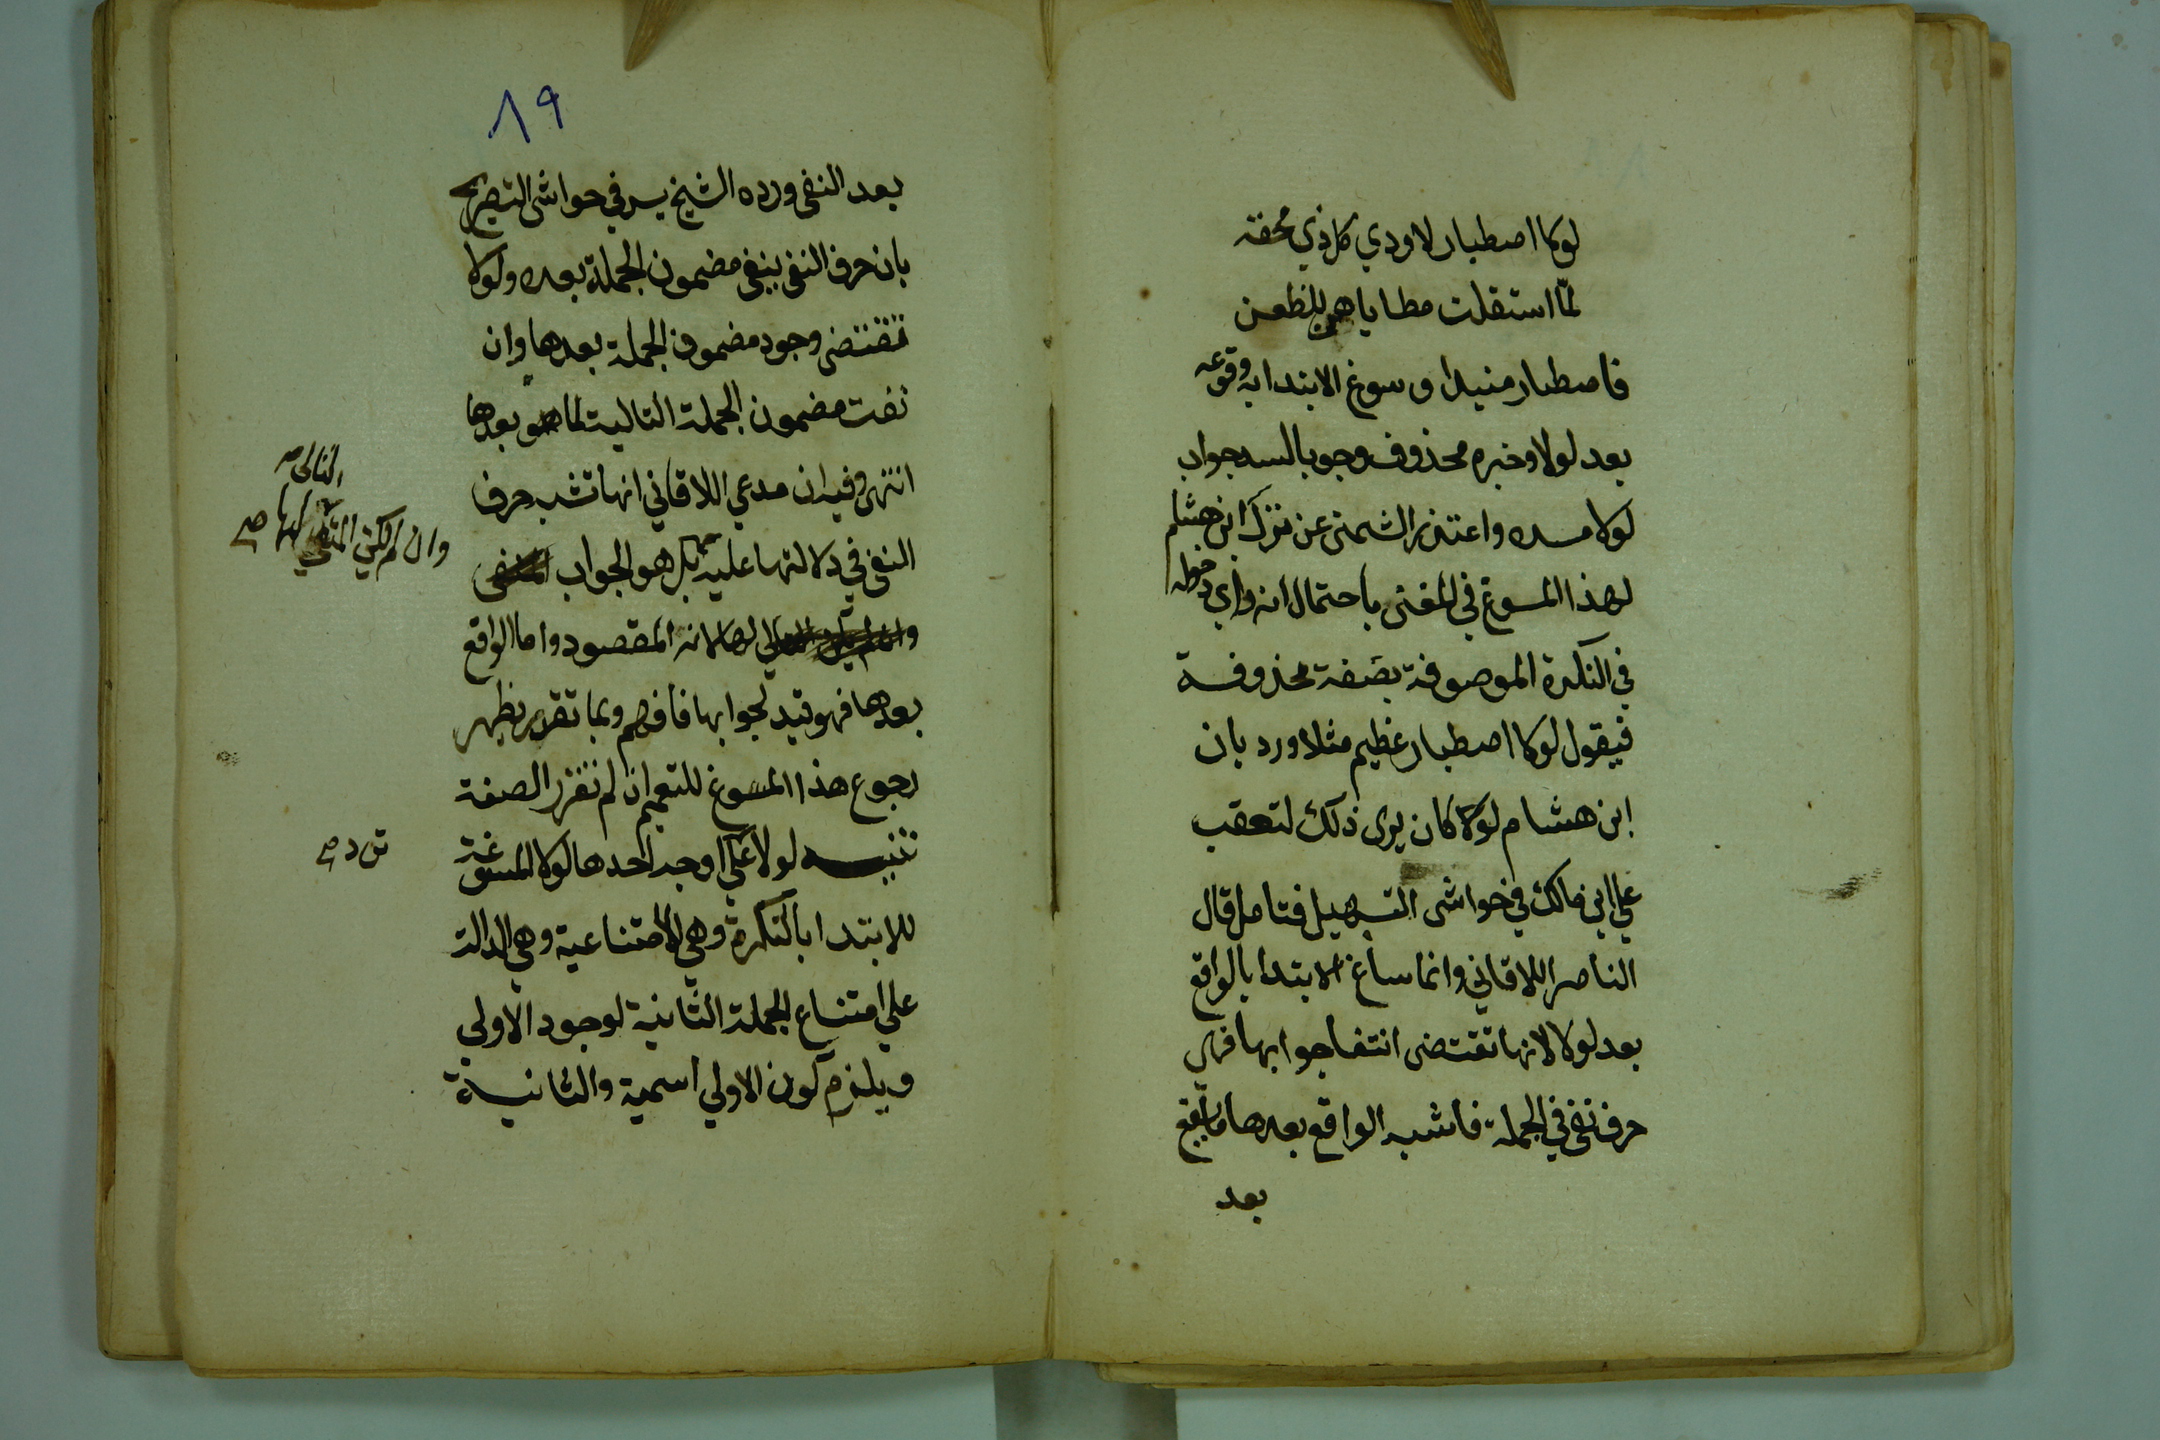 لولا اصطبار لاودي كل ذي محقة
لمّا استقلت مطاياهن للظعن
فاصطبار مبتدا وسوغ الابتدا به وقوعه
بعد لولا وخبره محذوف وجوبا لسد جواب
لولا مسده واعتذر الشمنى عن ترك ابن هشام
لهذا المسوغ في المغنى باحتمال انه راي دخوله
في النكرة الموصوفة بصفة محذوفة
فيقول لولا اصطبار عظيم مثلا ورد بان
ابن هشام لو كان يرى ذلك لتعقب
علي ابن مالك في حواشى التسهيل فتامل قال
الناصر اللاقاني وانما ساغ الابتدا بالواقع
بعد لولا لانها تقتضى انتفا جوابها فهى
حرف نفى في الجملة فاشبه الواقع بعدها ما يقع
بعد
٨٩
بعد النفى ورده الشيخ يس في حواشى التصريح
بان حرف النفى ينفى مضمون الجملة بعده ولولا
تقتضى وجود مضمون الجملة بعدها وان
نفت مضمون الجملة التالية لما هو بعدها
انتهى وفيه ان مدعي اللاقاني انها تشبه حرف
النفى في دلالتها عليه بل هو الجواب
لها لانه المقصود واما الواقع
بعدها فهو قيد لجوابها فافهم وبما تقرر يظهر
رجوع هذا المسوغ للتعميم ان لم تقرر الصفة
تنبيه لولا علي اوجه احدها لولا المسوغة
للابتدا بالنكرة وهي الامتناعية وهي الدالة
علي امتناع الجملة الثانية لوجود الاولي
ويلزم كون الاولي اسمية والثانية
التالى صح
وان لم يكن لها صح